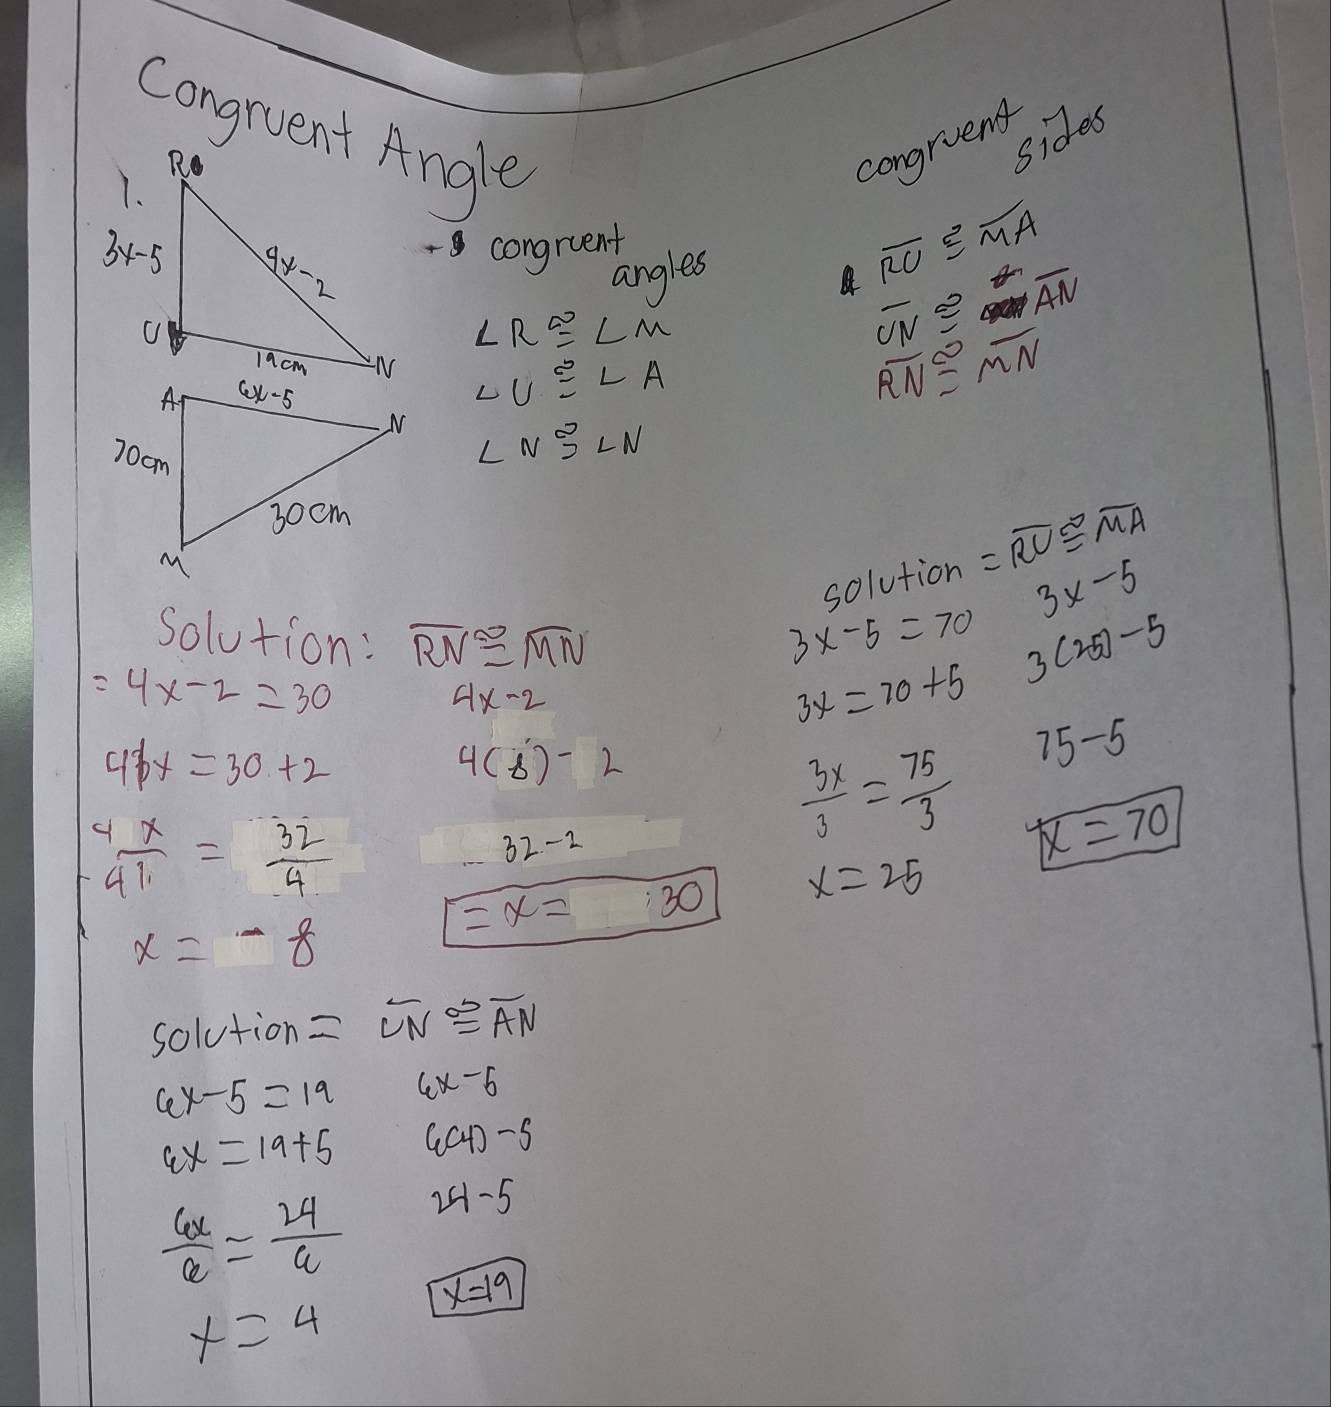 Congruent Angle
1.
R
3x-5
4x-2
U
19cm
N
A
6x-5
N
70cm
30cm
M
congruent
angles
∠R ≅ ∠M
∠U ≅ ∠A
∠N ≅ ∠N
congruent
sides
RU ≅ MA
UN ≅ AN
RN ≅ MN
Solution: RN ≅ MN
= 4x-2 = 30
4x = 30+2
4x/4 = 32/4
x = 8
4x-2
4(8)-2
32-2
= x = 30
solution = RU ≅ MA
3x-5 = 70
3x = 70+5
3x/3 = 75/3
x = 25
3x-5
3(25)-5
75-5
x = 70
solution = UN ≅ AN
6x-5 = 19
6x = 19+5
6x/6 = 24/6
x = 4
6x-5
6(4)-5
24-5
x=19